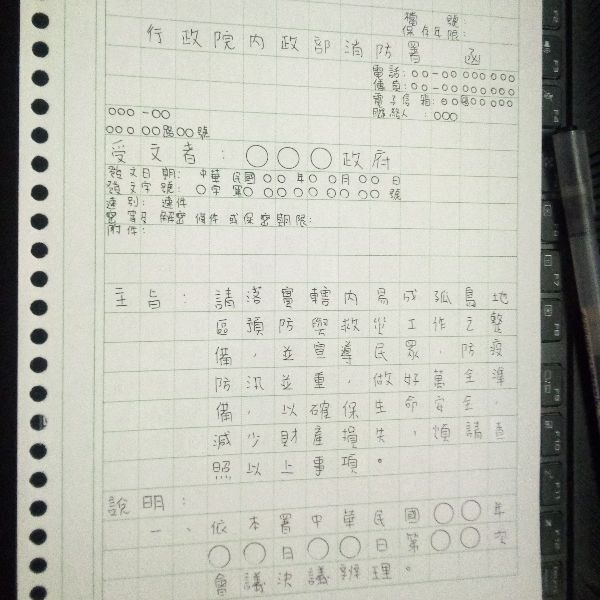 檔 號:
保存年限:
行政院內政部消防署 函
電話:○○-○○○○○○○○
傳真:○○-○○○○○○○○
電子信箱:○○@○○○○○
聯絡人 :○○○
○○○-○○
○○○○○路○○號
受文者:○○○政府
發文日期:中華民國○○年○○月○○日
發文字號:○字第○○○○○○○○○號
速別:速件
密等及解密條件或保密期限:
附件:
主旨:請落實轄內易成孤島地
區預防與救災工作之整
備,並宣導民眾,防疫
防汛並重,做好萬全準
備,以確保生命安全,
減少財產損失,煩請查
照以上事項。
說明:
一、依本署中華民國○○年
○○日○○日第○○次
會議決議辦理。